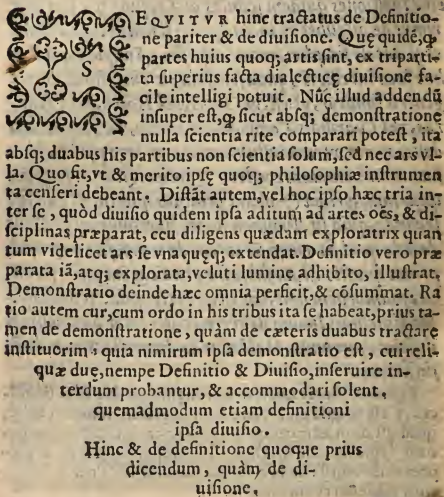 SEQVITVR hinc tractatus de Definitio-
ne pariter & de diuisione. Quę quidé, ꝙ
partes huius quoq; artis sint, ex triparti-
ta superius facta dialecticę diuisione fa-
cile intelligi potuit. Nũc illud addendũ
insuper est, ꝙ sicut absq; demonstratione
nulla scientia rite comparari potest, ita
absq; duabus his partibus non scientia solum, sed nec ars vl-
la. Quo fit, vt & merito ipsę quoq; philosophiæ instrumen
ta censeri debeant. Distãt autem, vel hoc ipso hæc tria in-
ter se, quòd diuisio quidem ipsa aditum ad artes oẽs, & di-
sciplinas præparat, ceu diligens quædam exploratrix quan
tum videlicet ars se vnaquęq; extendat. Definitio vero præ
parata iã, atq; explorata, veluti lumine adhibito, illustrat.
Demonstratio deinde hæc omnia perficit, & cõsummat. Ra
tio autem cur, cum ordo in his tribus ita se habeat, prius ta-
men de demonstratione, quàm de cæteris duabus tractare
instituerim: quia nimirum ipsa demonstratio est, cui reli-
quæ duę, nempe Definitio & Diuisio, inseruire in-
terdum probantur, & accommodari solent,
quemadmodum etiam definitioni
ipsa diuisio.
Hinc & de definitione quoque prius
dicendum, quàm de di-
uisione,